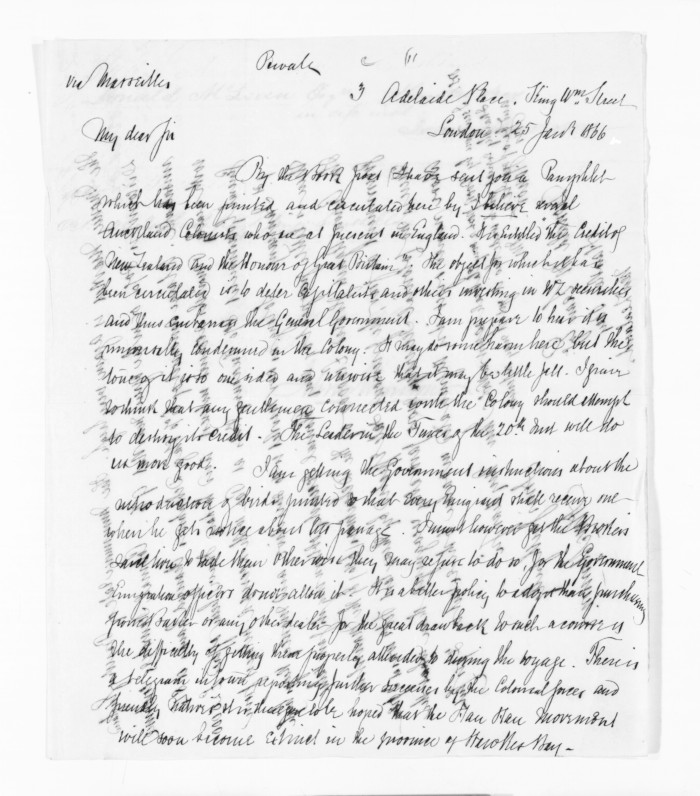 Private
via Marseilles
3 Adelaide Place, King Wm Street
London 25 Jany 1866
My dear Sir
By the Book post I have sent you a Pamphlet
which has been printed and circulated here by I believe several
Auckland Colonists who are at present in England. It is entitled the Credit of
New Zealand and the Honour of Great Britain". The object for which it has
been circulated is to deter Capitalists and others investing in NZ securities
and thus embarrass the General Government. I am prepare to hear it is
universally condemned in the Colony. It may do some harm here but the
tone of it is so one sided and unwise that it may be little felt. I grieve
to think that any gentlemen connected with the Colony should attempt
to destroy its credit. The Leader in the Times of the 20th Inst will do
us more good. I am getting the Government instructions about the
introduction of birds printed so that every Emigrant shall receive one
when he gets notice about his passage. I must however get the Brokers
to take them otherwise they may refuse to do so, for the Government
Emigration officers do not allow it. It is a better policy to adopt than purchasing
from or any other dealer for the great drawback to such a course is
the difficulty of getting them properly attended to during the voyage. There is
a telegram in town reporting further successes by the Colonial forces and
friendly natives so it is to be hoped that the Hau Hau movement
will soon become extinct in the province of Hawkes Bay -